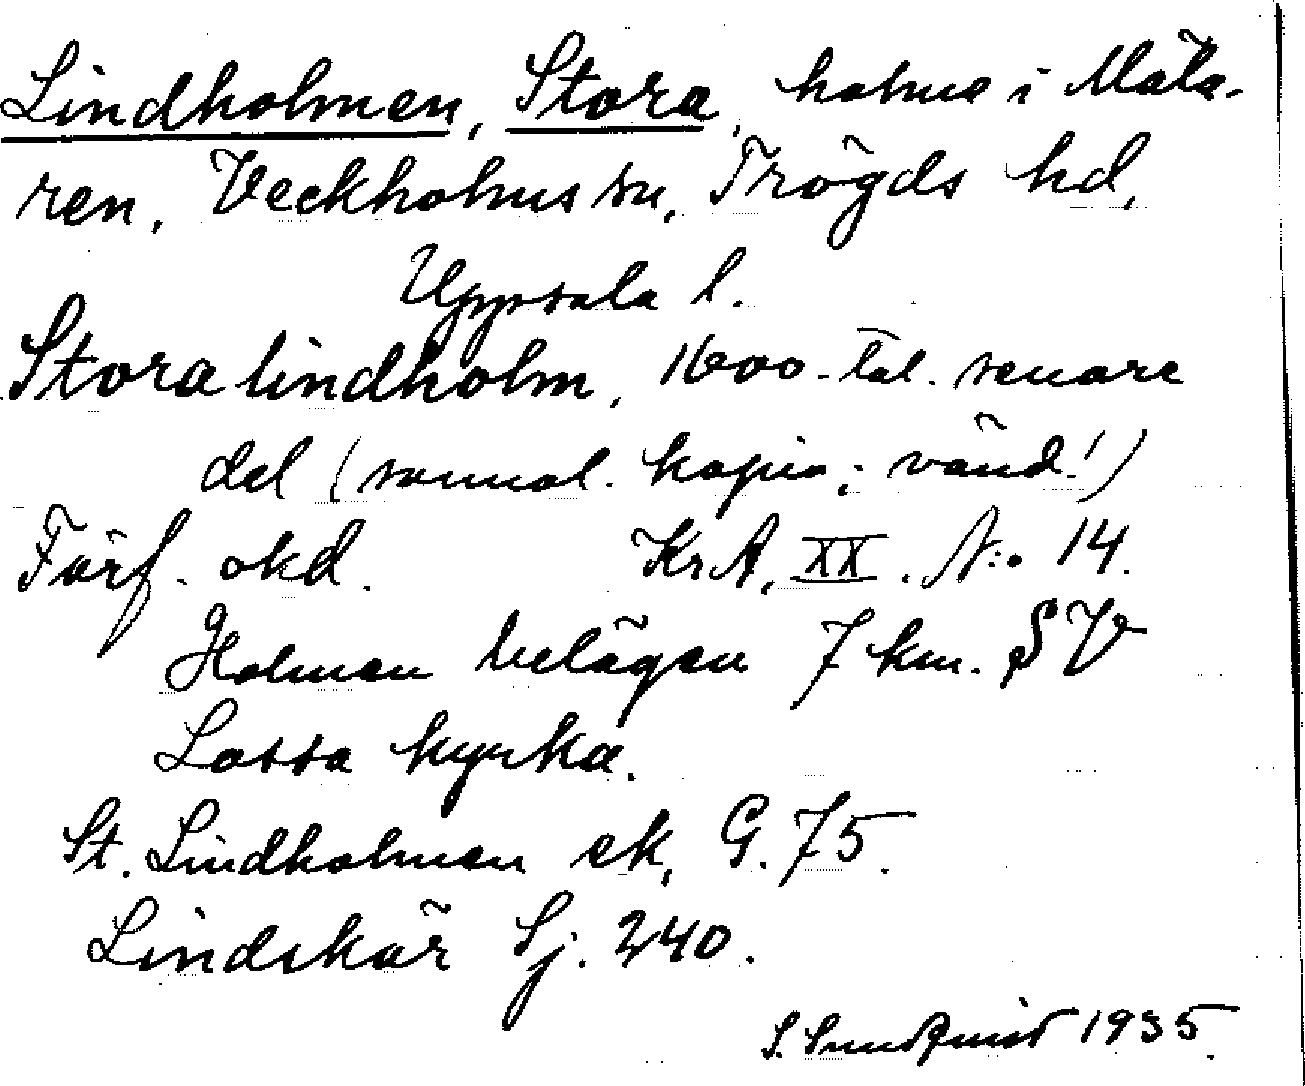 Lindholmen, Stora, holme i Mäla-
ren, Veckholms sn, Trögds hd,
Uppsala l.
Stora lindholm, 1600-tal. senare
del (samml. kopia; vänd!)
Förf. okd. KrA, XX. N:o 14.
Holmen belägen 7 km. SV
Lossa kyrka.
St. Lindholmen ek, G. 75.
Lindskär Sj. 240.
S. Sundquist 1935.